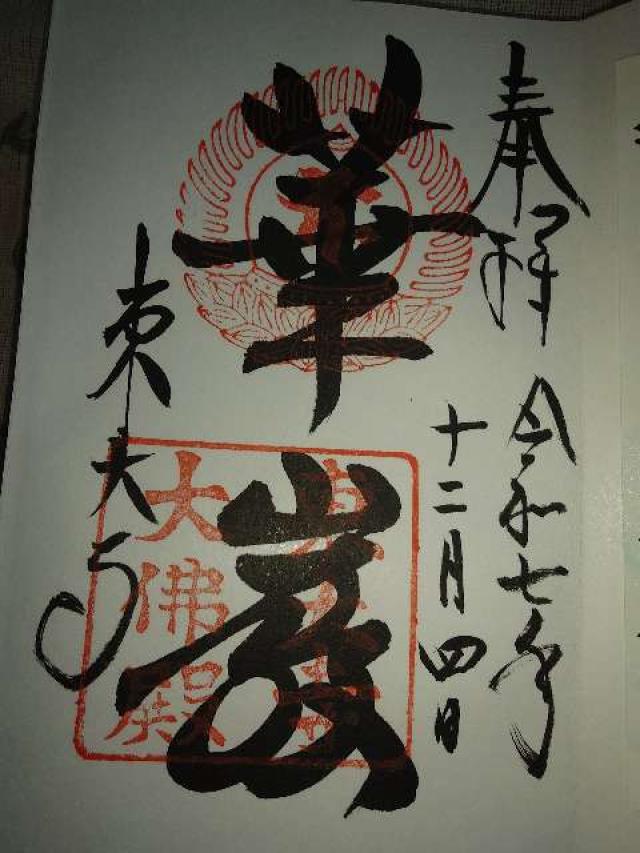 奉拝
令和七年
十二月四日
華厳
東大寺
東大寺
大佛殿